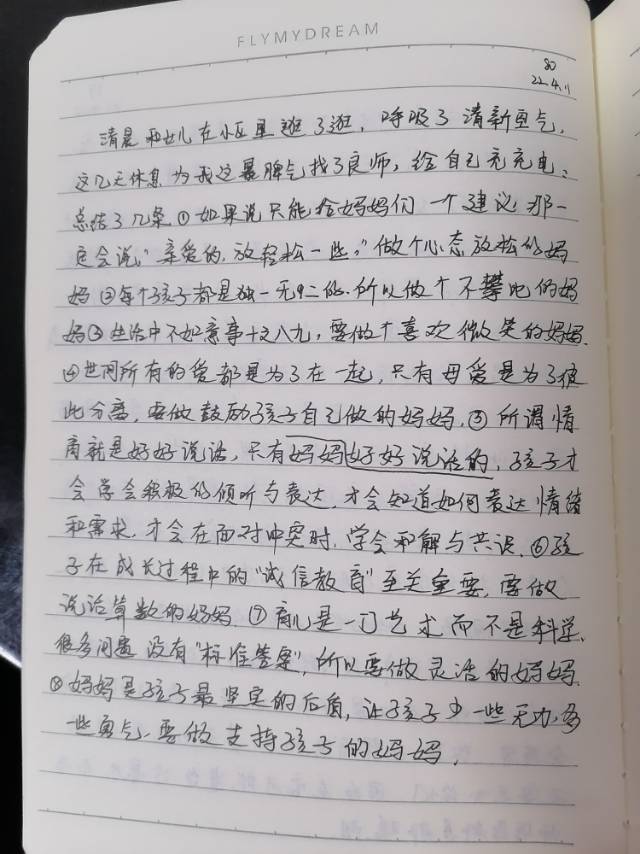 FLYMYDREAM
80
22.4.11
清晨和女儿在小区里逛了逛，呼吸了清新空气，
这几天休息为我这暴脾气找了良师，给自己充充电。
总结了几条①如果说只能给妈妈们一个建议那一
定会说，"亲爱的，放轻松一些，"做个心态放松的妈
妈②每个孩子都是独一无二的.所以做个不攀比的妈
妈③生活中不如意事十之八九，要做个喜欢微笑的妈妈.
④世间所有的爱都是为了在一起，只有母爱是为了彼
此分离，要做鼓励孩子自己做的妈妈.⑤所谓情
商就是好好说话，只有妈妈好好说话的，孩子才
会学会积极的倾听与表达，才会知道如何表达情绪
和需求，才会在面对冲突时，学会和解与共识.⑥孩
子在成长过程中的"诚信教育"至关重要，要做
说话算数的妈妈⑦育儿是一门艺术而不是科学.
很多问题没有"标准答案"，所以要做灵活的妈妈.
⑧妈妈是孩子最坚定的后盾，让孩子少一些无力，多
一些勇气，要做支持孩子的妈妈.